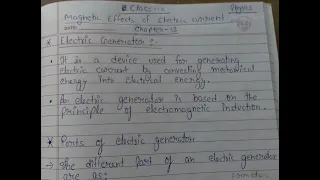 Class-10
Physics
Magnetic Effects of Electric current
Chapter-13
* Electric Generator :-
• It is a device used for generating
electric current by converting mechanical
energy into electrical energy.
• An electric generator is based on the
principle of electromagnetic induction.
* Parts of electric generator
→ The different part of an electric generator
are as: